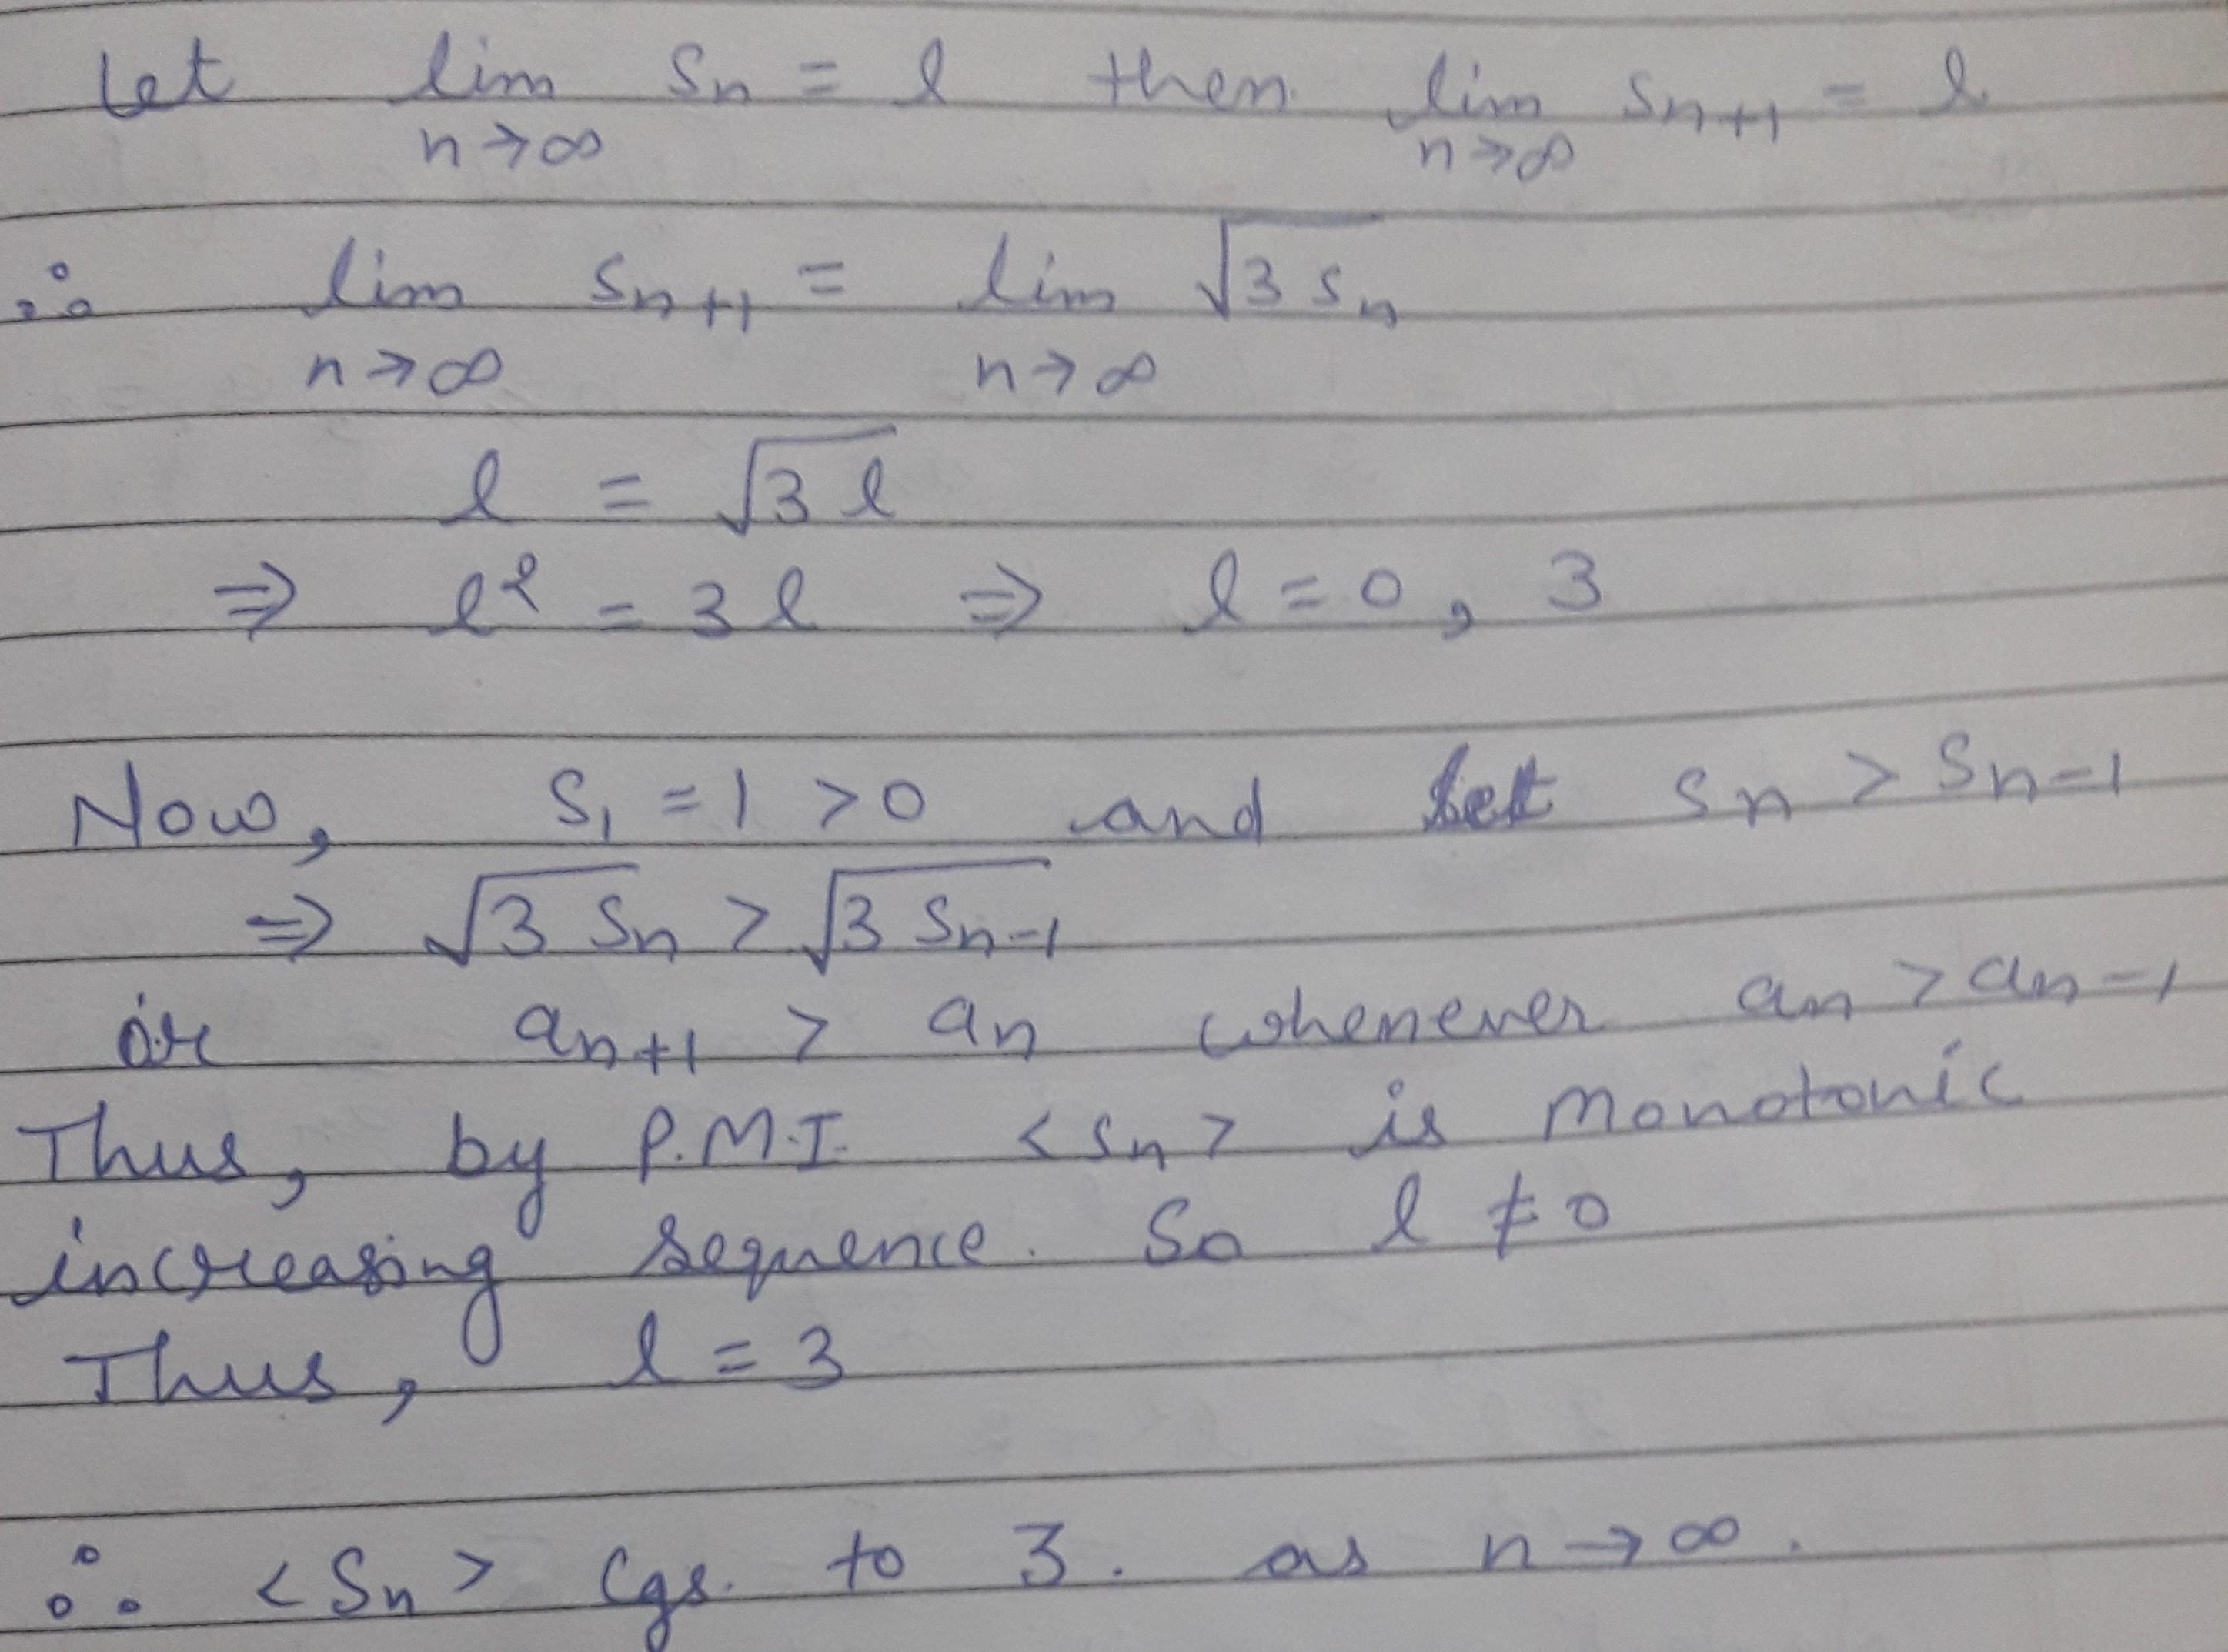 Let lim Sn = l then lim Sn+1 = l
n→∞ n→∞
∴ lim Sn+1 = lim √3Sn
n→∞ n→∞
l = √3l
⇒ l² = 3l ⇒ l = 0, 3
Now, S₁ = 1 > 0 and let Sn > Sn-1
⇒ √3Sn > √3Sn-1
or an+1 > an whenever an > an-1
Thus, by P.M.I. <Sn> is monotonic
increasing sequence. So l ≠ 0
Thus, l = 3
∴ <Sn> cgs. to 3. as n→∞.